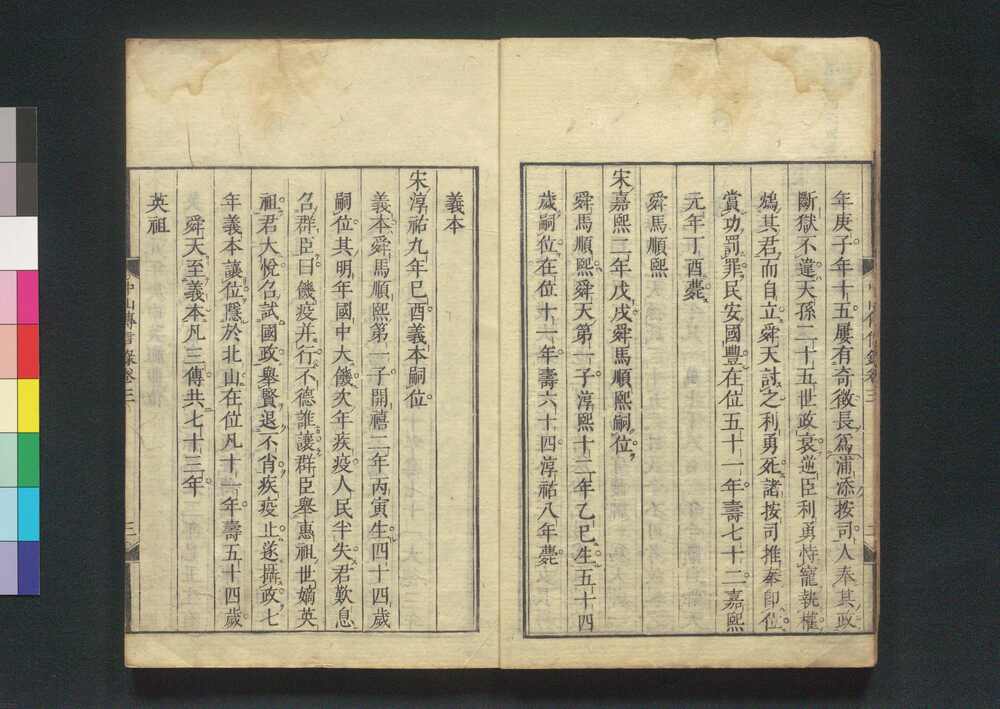 年庚子年十五屢有奇徵長爲浦添按司人奉其政
斷獄不違天孫二十五世政衰逆臣利勇恃寵執權
鴆其君而自立舜天討之利勇死諸按司推奉卽位
賞功罰罪民安國豐在位五十一年壽七十二嘉熙
元年丁酉薨
舜馬順熙
宋嘉熙二年戊戌舜馬順熙嗣位
舜馬順熙舜天第一子淳熙十二年乙巳生五十四
歲嗣位在位十一年壽六十四淳祐八年薨
中山傳信錄卷三
二
義本
宋淳祐九年巳酉義本嗣位
義本舜馬順熙第一子開禧二年丙寅生四十四歲
嗣位其明年國中大饑次年疾疫人民半失君歎息
召群臣曰饑疫并行不德誰讓群臣舉惠祖世嫡英
祖君大悅召試國政舉賢退不肖疾疫止遂攝政七
年義本讓位隱於北山在位凡十一年壽五十四歲
舜天至義本凡三傳共七十三年
英祖
中山傳信錄卷三
三